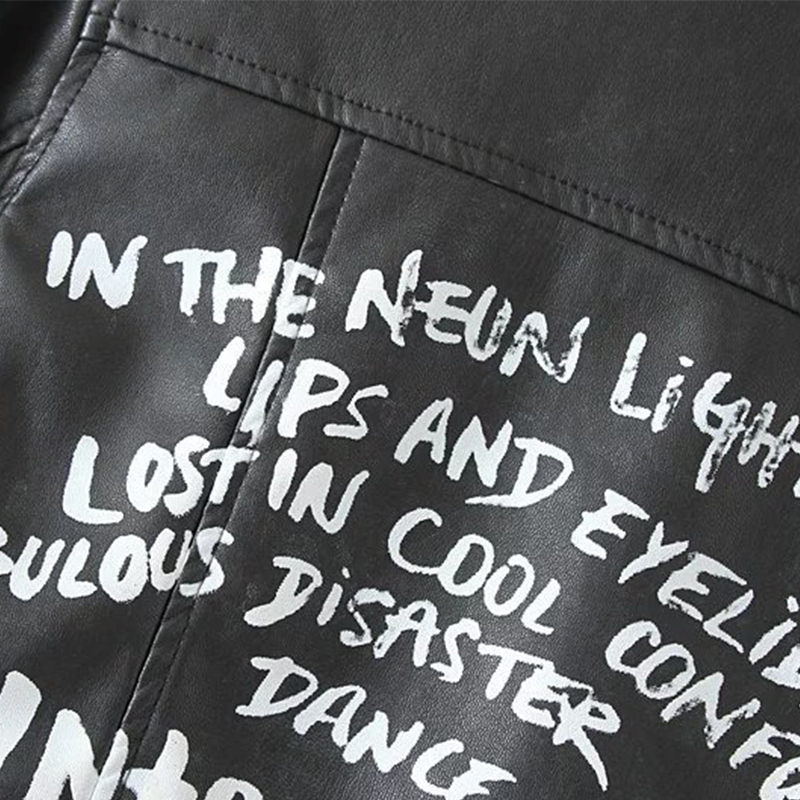 IN THE NEUN LiGHT
LIPS AND EYELID
LOST IN COOL CONFU
BULOUS DiSASTER
DANCE